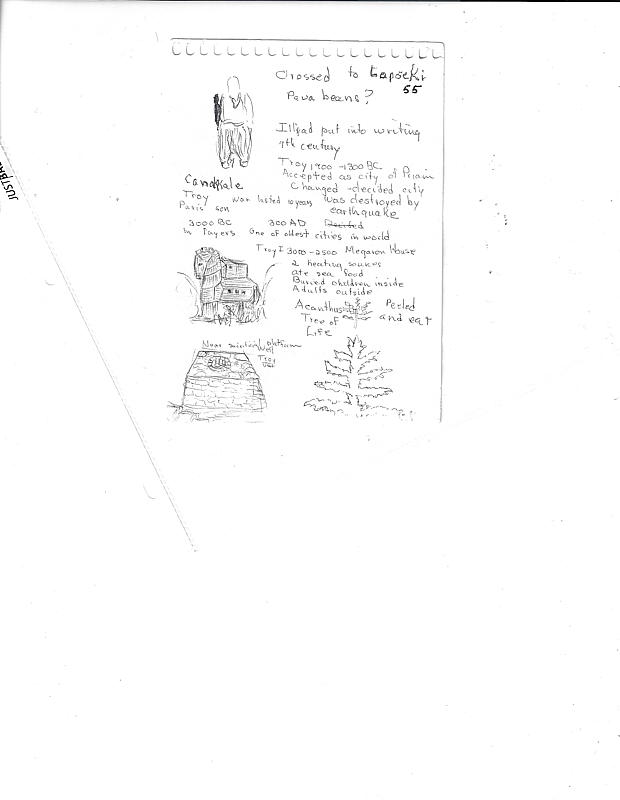 Crossed to Lapseki
55
Pava beans?
Illiad put into writing
7th century
Troy 1900 - 1300 BC
Accepted as city of Priam
Canakkale
Changed - decided city
Troy war lasted 10 years was destroyed by
Paris son
earthquake
3000 BC 300 AD Decided
In layers One of oldest cities in world
Troy I 3000-2500 Megaron House
2 heating sources
ate sea food
Buried children inside
Adults outside
Acanthus Peeled
Tree of and eat
Life
Near
Well
Troy
JUST